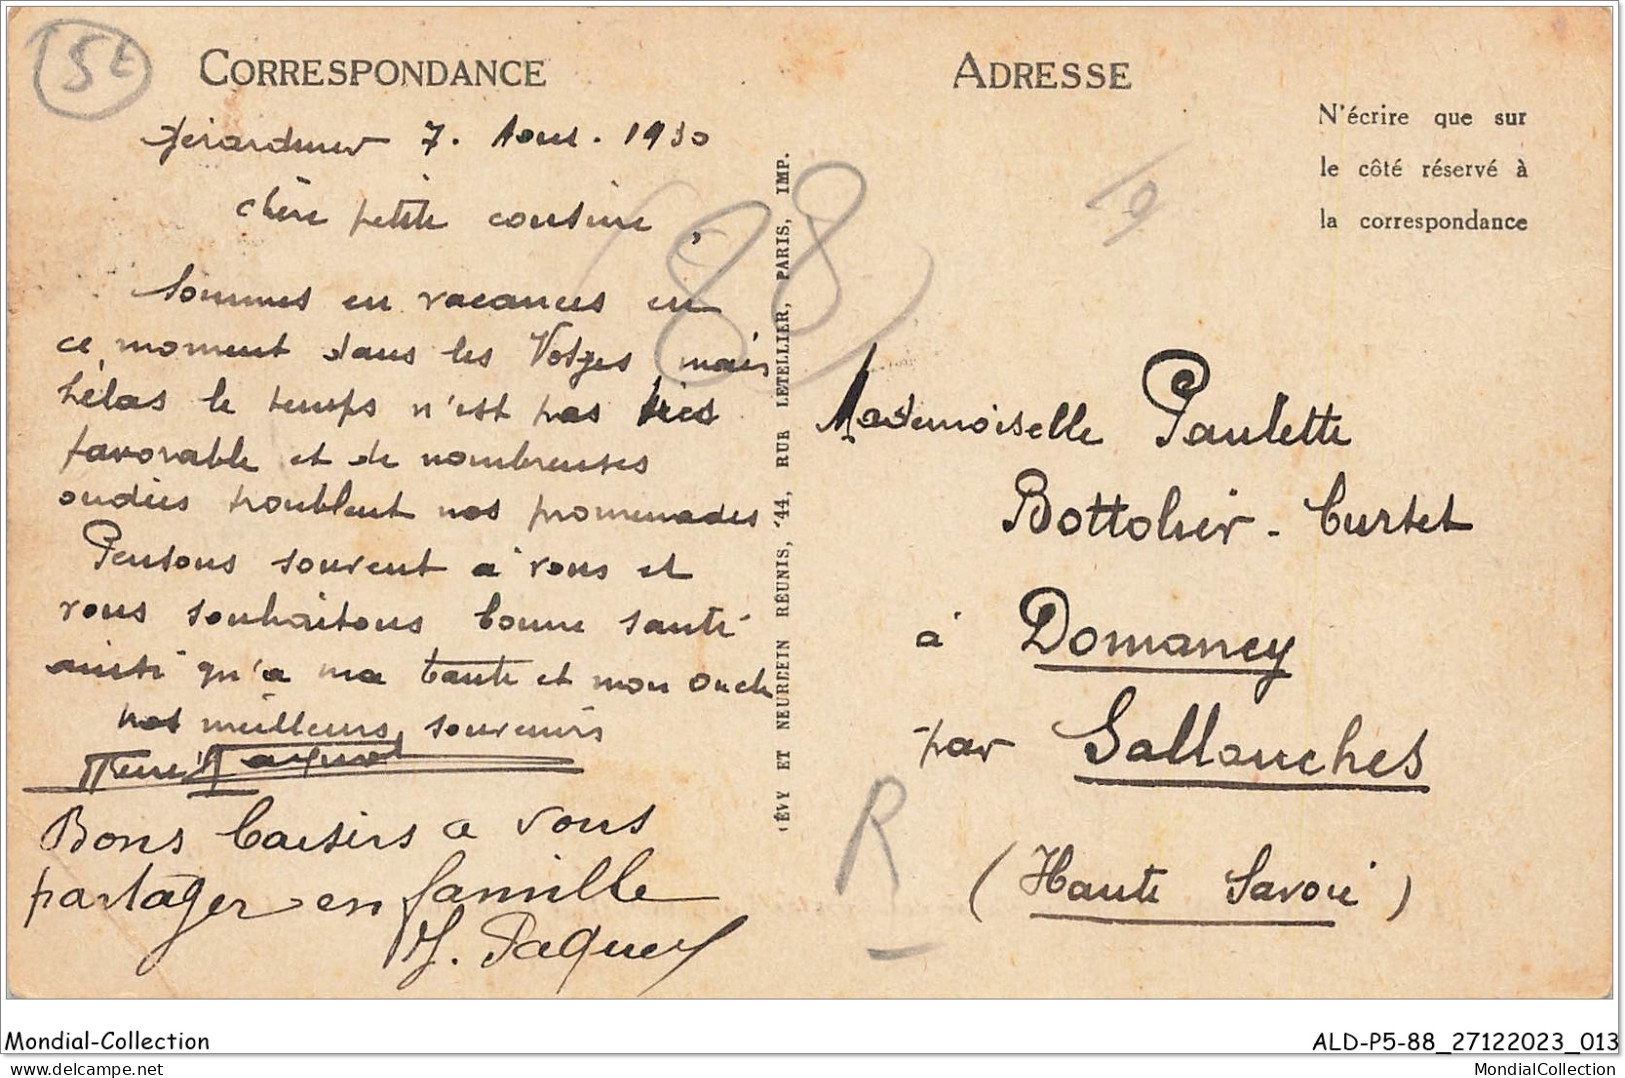 5E
CORRESPONDANCE
Gérardmer 7. Aout. 1930
chère petite cousine,
Sommes en vacances en
ce moment dans les Vosges mais
hélas le temps n'est pas très
favorable et de nombreuses
ondées troublent nos promenades
Pensons souvent à vous et
vous souhaitons bonne santé
ainsi qu'a ma tante et mon oncle
nos meilleurs souvenirs
Bons baisers a vous
partager en famille
Paquet
(88)
LÉVY ET NEURDEIN RÉUNIS, 44, RUE LETELLIER, PARIS, IMP.
ADRESSE
N'écrire que sur
le côté réservé à
la correspondance
Mademoiselle Paulette
Bottolier-Curtet
à Domancy
par Sallanches
(Haute Savoie)
R
Mondial-Collection
ALD-P5-88_27122023_013
Mondial-Collection.net
MondialCollection